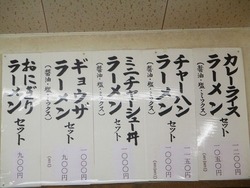 カレーライス
ラーメン
セット
(醤油・塩・ミックス)
一〇五〇円
チャーハン
ラーメン
セット
(醤油・塩・ミックス)
ミニチャーシュー丼
ラーメン
セット
(醤油・塩・ミックス)
一〇〇〇円
ギョウザ
ラーメン
セット
(醤油・塩・ミックス)
一〇〇〇円
九〇〇円
おにぎり
ラーメン
セット
九〇〇円